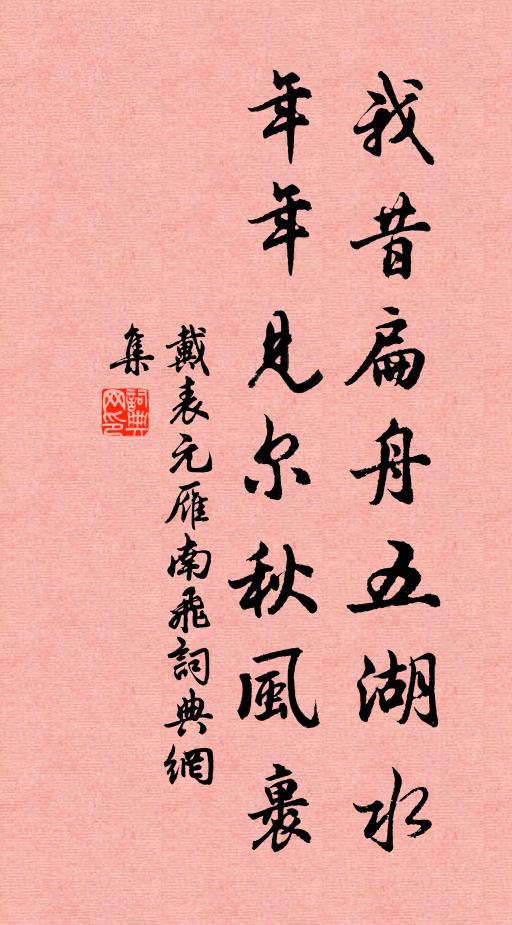 我昔扁舟五湖水
年年見尔秋風裏
戴表元雁南飛詞典網
集
詞典网印